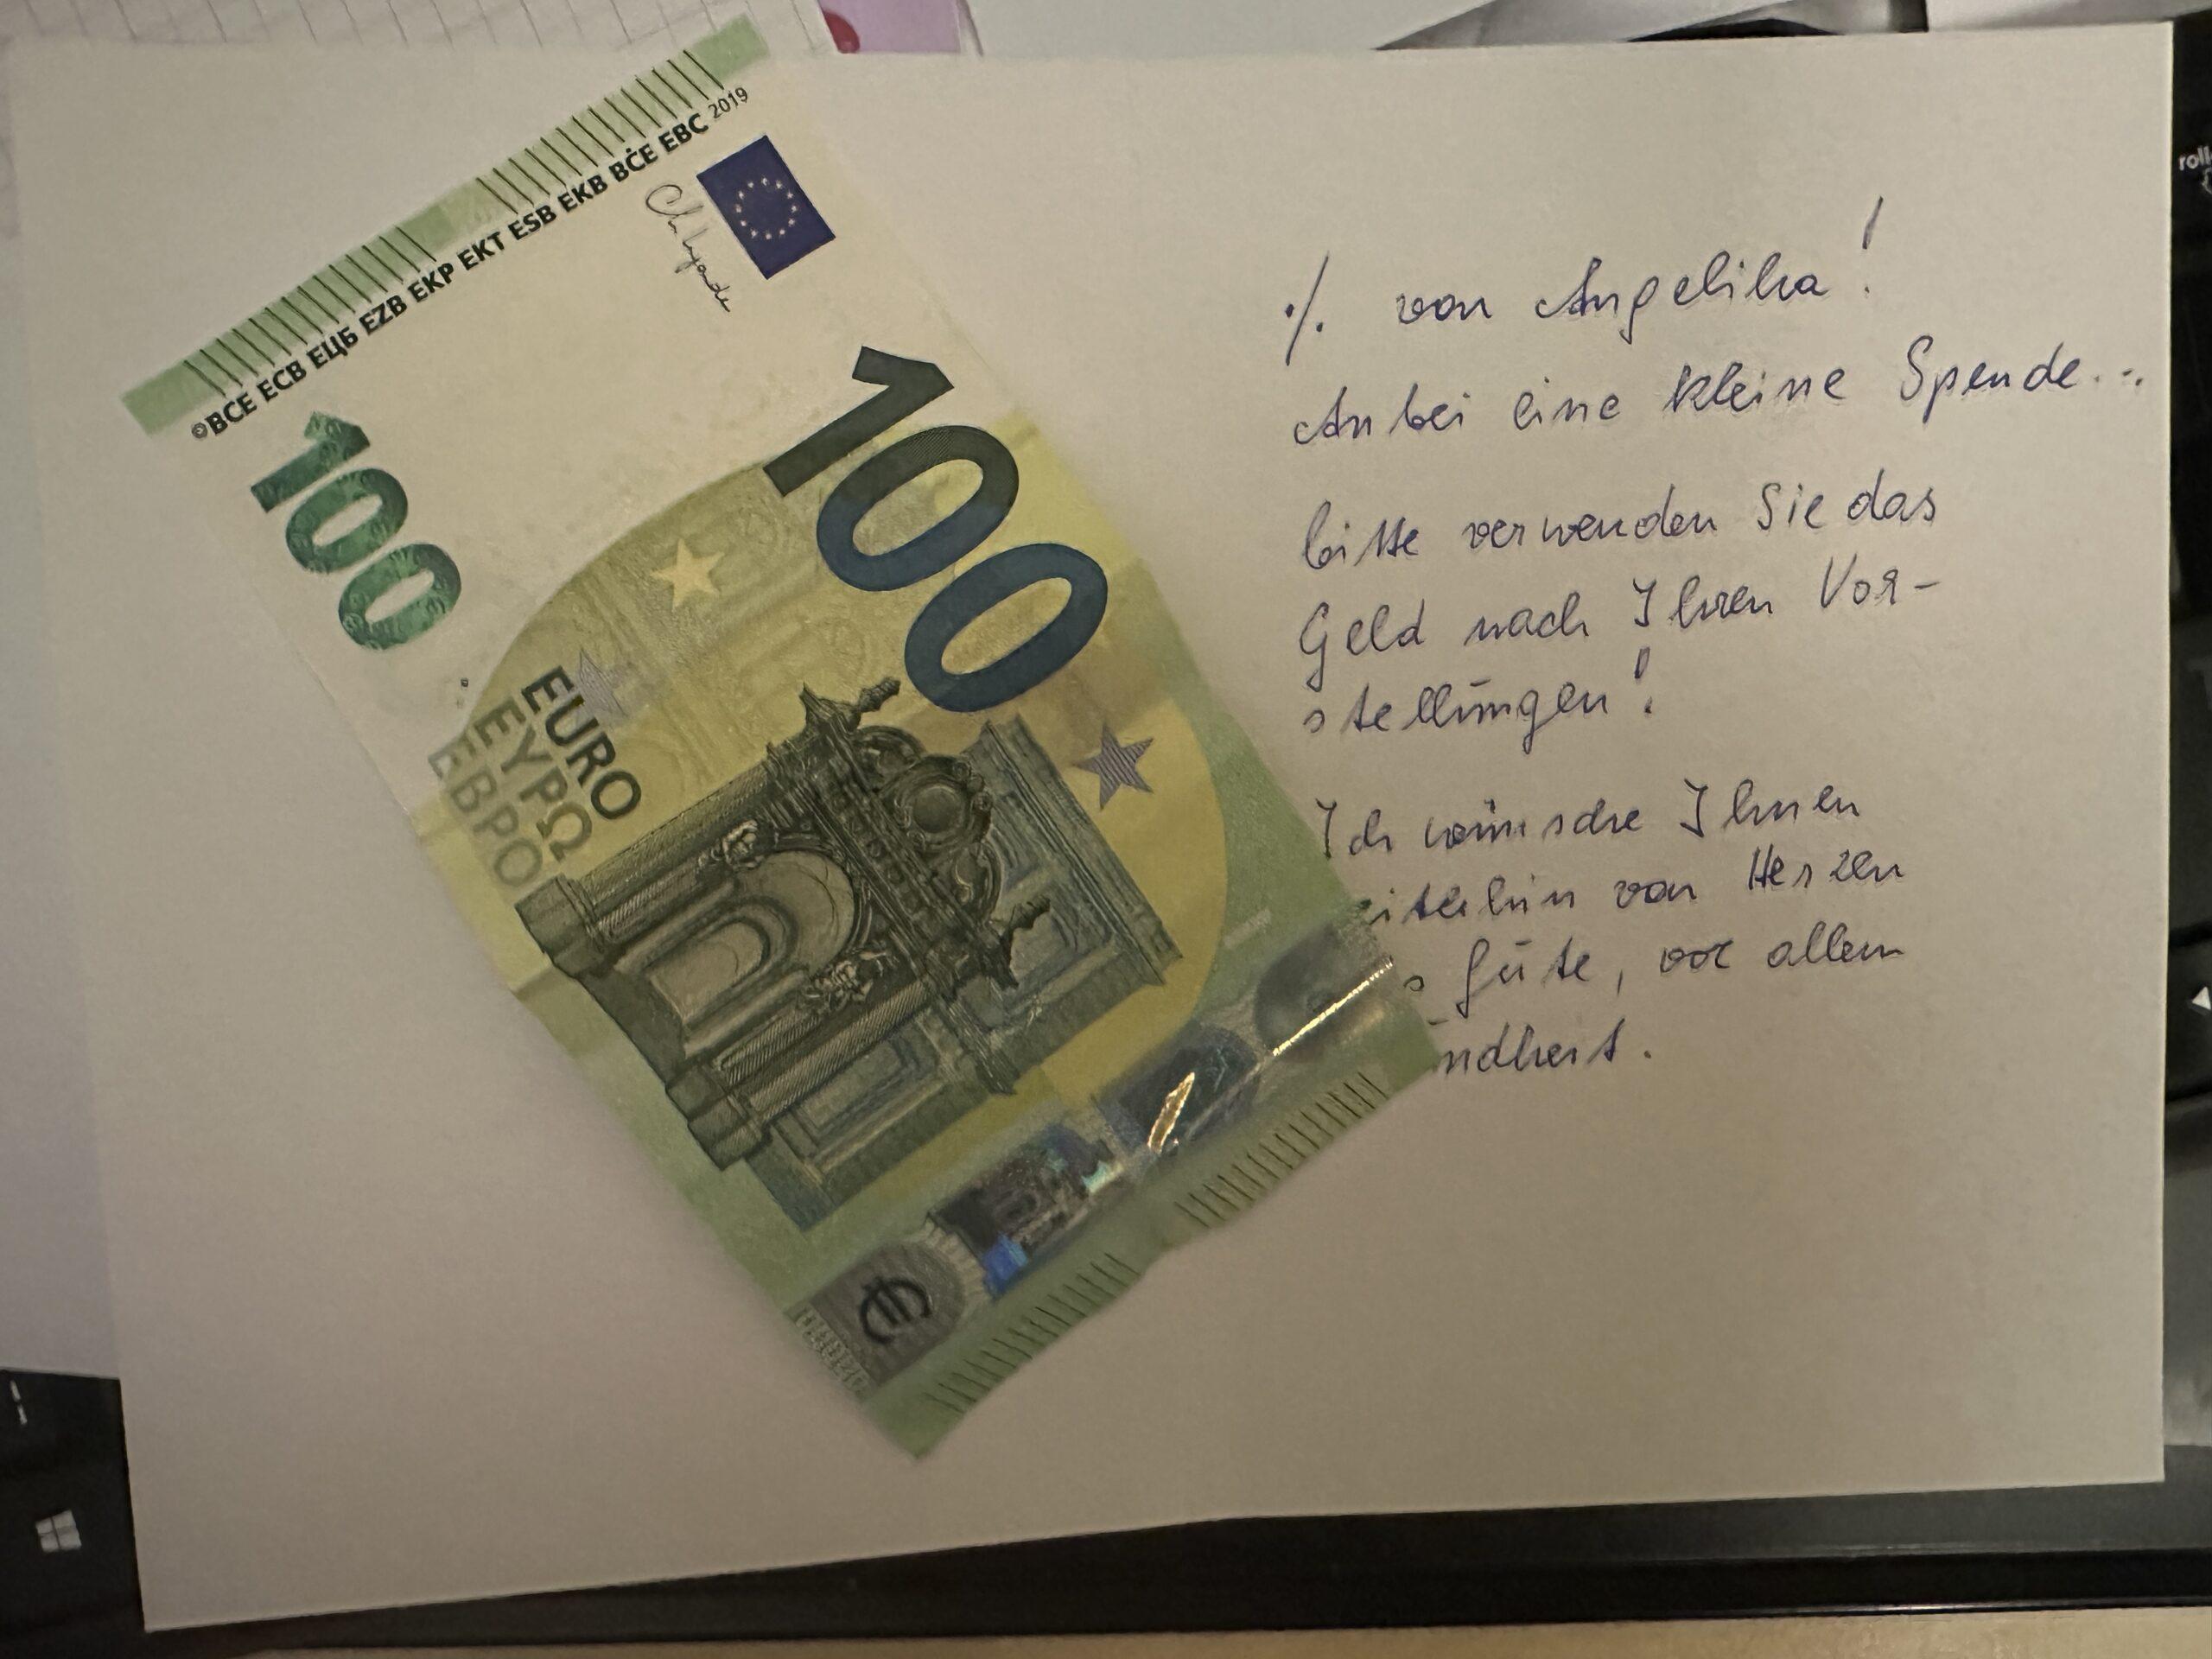 ©BCE ECB ЕЦБ EZB EKP EKT ESB EKB BĊE EBC 2019
100
100
EURO
ΕΥΡΩ
ЕВРО
€
./. von Angelika!
Anbei eine kleine Spende...
bitte verwenden Sie das
Geld nach Ihren Vor-
stellungen!
Ich wünsche Ihnen
eiterhin von Herzen
s Gute, vor allem
undheit.
roll